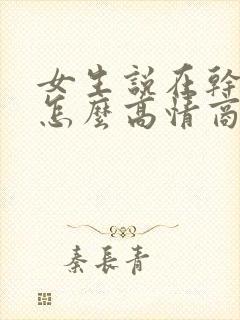 女生說在幹
怎麼高情商
秦長青